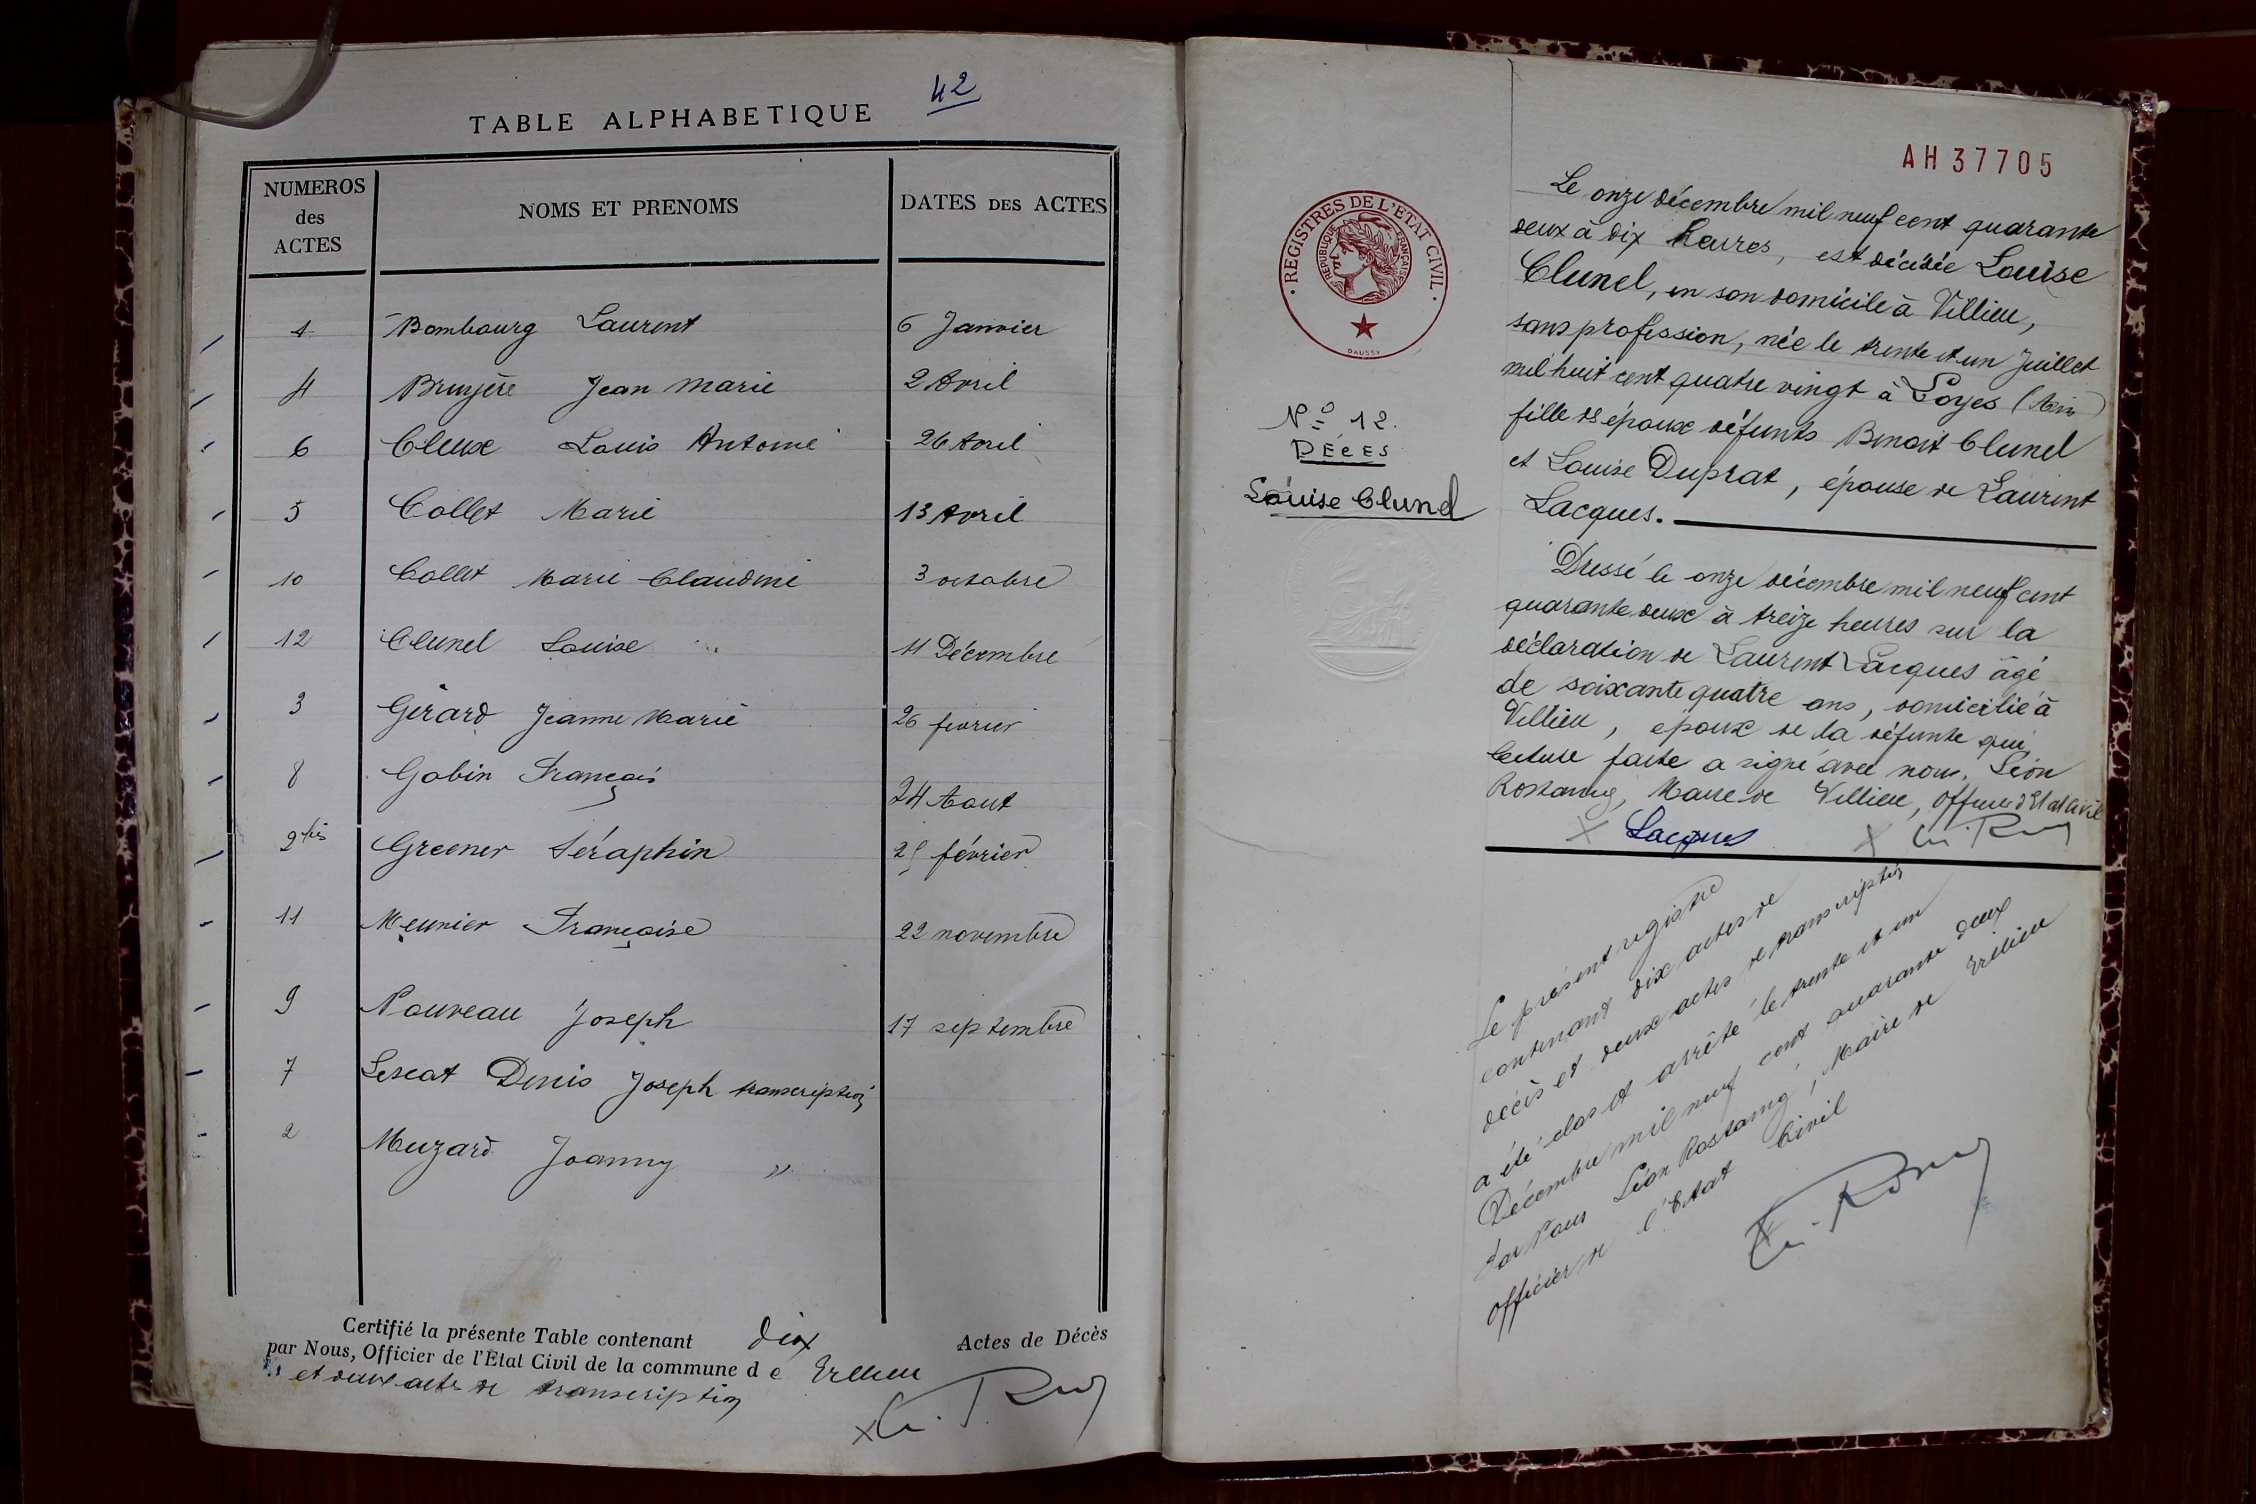 42
TABLE ALPHABETIQUE
NUMEROS des ACTES
NOMS ET PRENOMS
DATES DES ACTES
1 Bombourg Laurent 6 Janvier
4 Bruyère Jean Marie 2 Avril
6 Cleux Louis Antoine 26 Avril
5 Collet Marie 13 Avril
10 Collet Marie Claudine 3 octobre
12 Clunel Louise 11 Décembre
3 Gérard Jeanne Marie 26 février
8 Gobin François 24 Aout
2 bis Greener Séraphin 25 février
11 Meunier Françoise 22 novembre
9 Nouveau Joseph 17 septembre
7 Lescat Denis Joseph transcription
2 Muzard Joanny "
Certifié la présente Table contenant dix Actes de Décès
par Nous, Officier de l'Etat Civil de la commune d e Villieu
et deux acte de transcription
AH 37705
· REGISTRES DE L'ETAT CIVIL ·
REPUBLIQUE FRANÇAISE
DAUSSY
N° 12.
DÉCES
Louise Clunel
Le onze décembre mil neuf cent quarante
deux à dix heures, est décédée Louise
Clunel, en son domicile à Villieu,
sans profession, née le trente et un Juillet
mil huit cent quatre vingt à Loyes (Ain)
fille de époux défunts Benoit Clunel
et Louise Duprat, épouse de Laurent
Lacques.
Dressé le onze décembre mil neuf cent
quarante deux à treize heures sur la
déclaration de Laurent Lacques âgé
de soixante quatre ans, domicilié à
Villieu, époux de la défunte qui,
lecture faite a signé avec nous. Léon
Rostaing, Maire de Villieu, officier d'Etat Civil
Lacques
Le présent registre
contenant dix actes de
décès et deux actes de transcription
a été clos et arrêté le trente et un
Décembre mil neuf cent quarante deux
par Nous Léon Rostaing, Maire de Villieu
officier de l'Etat Civil